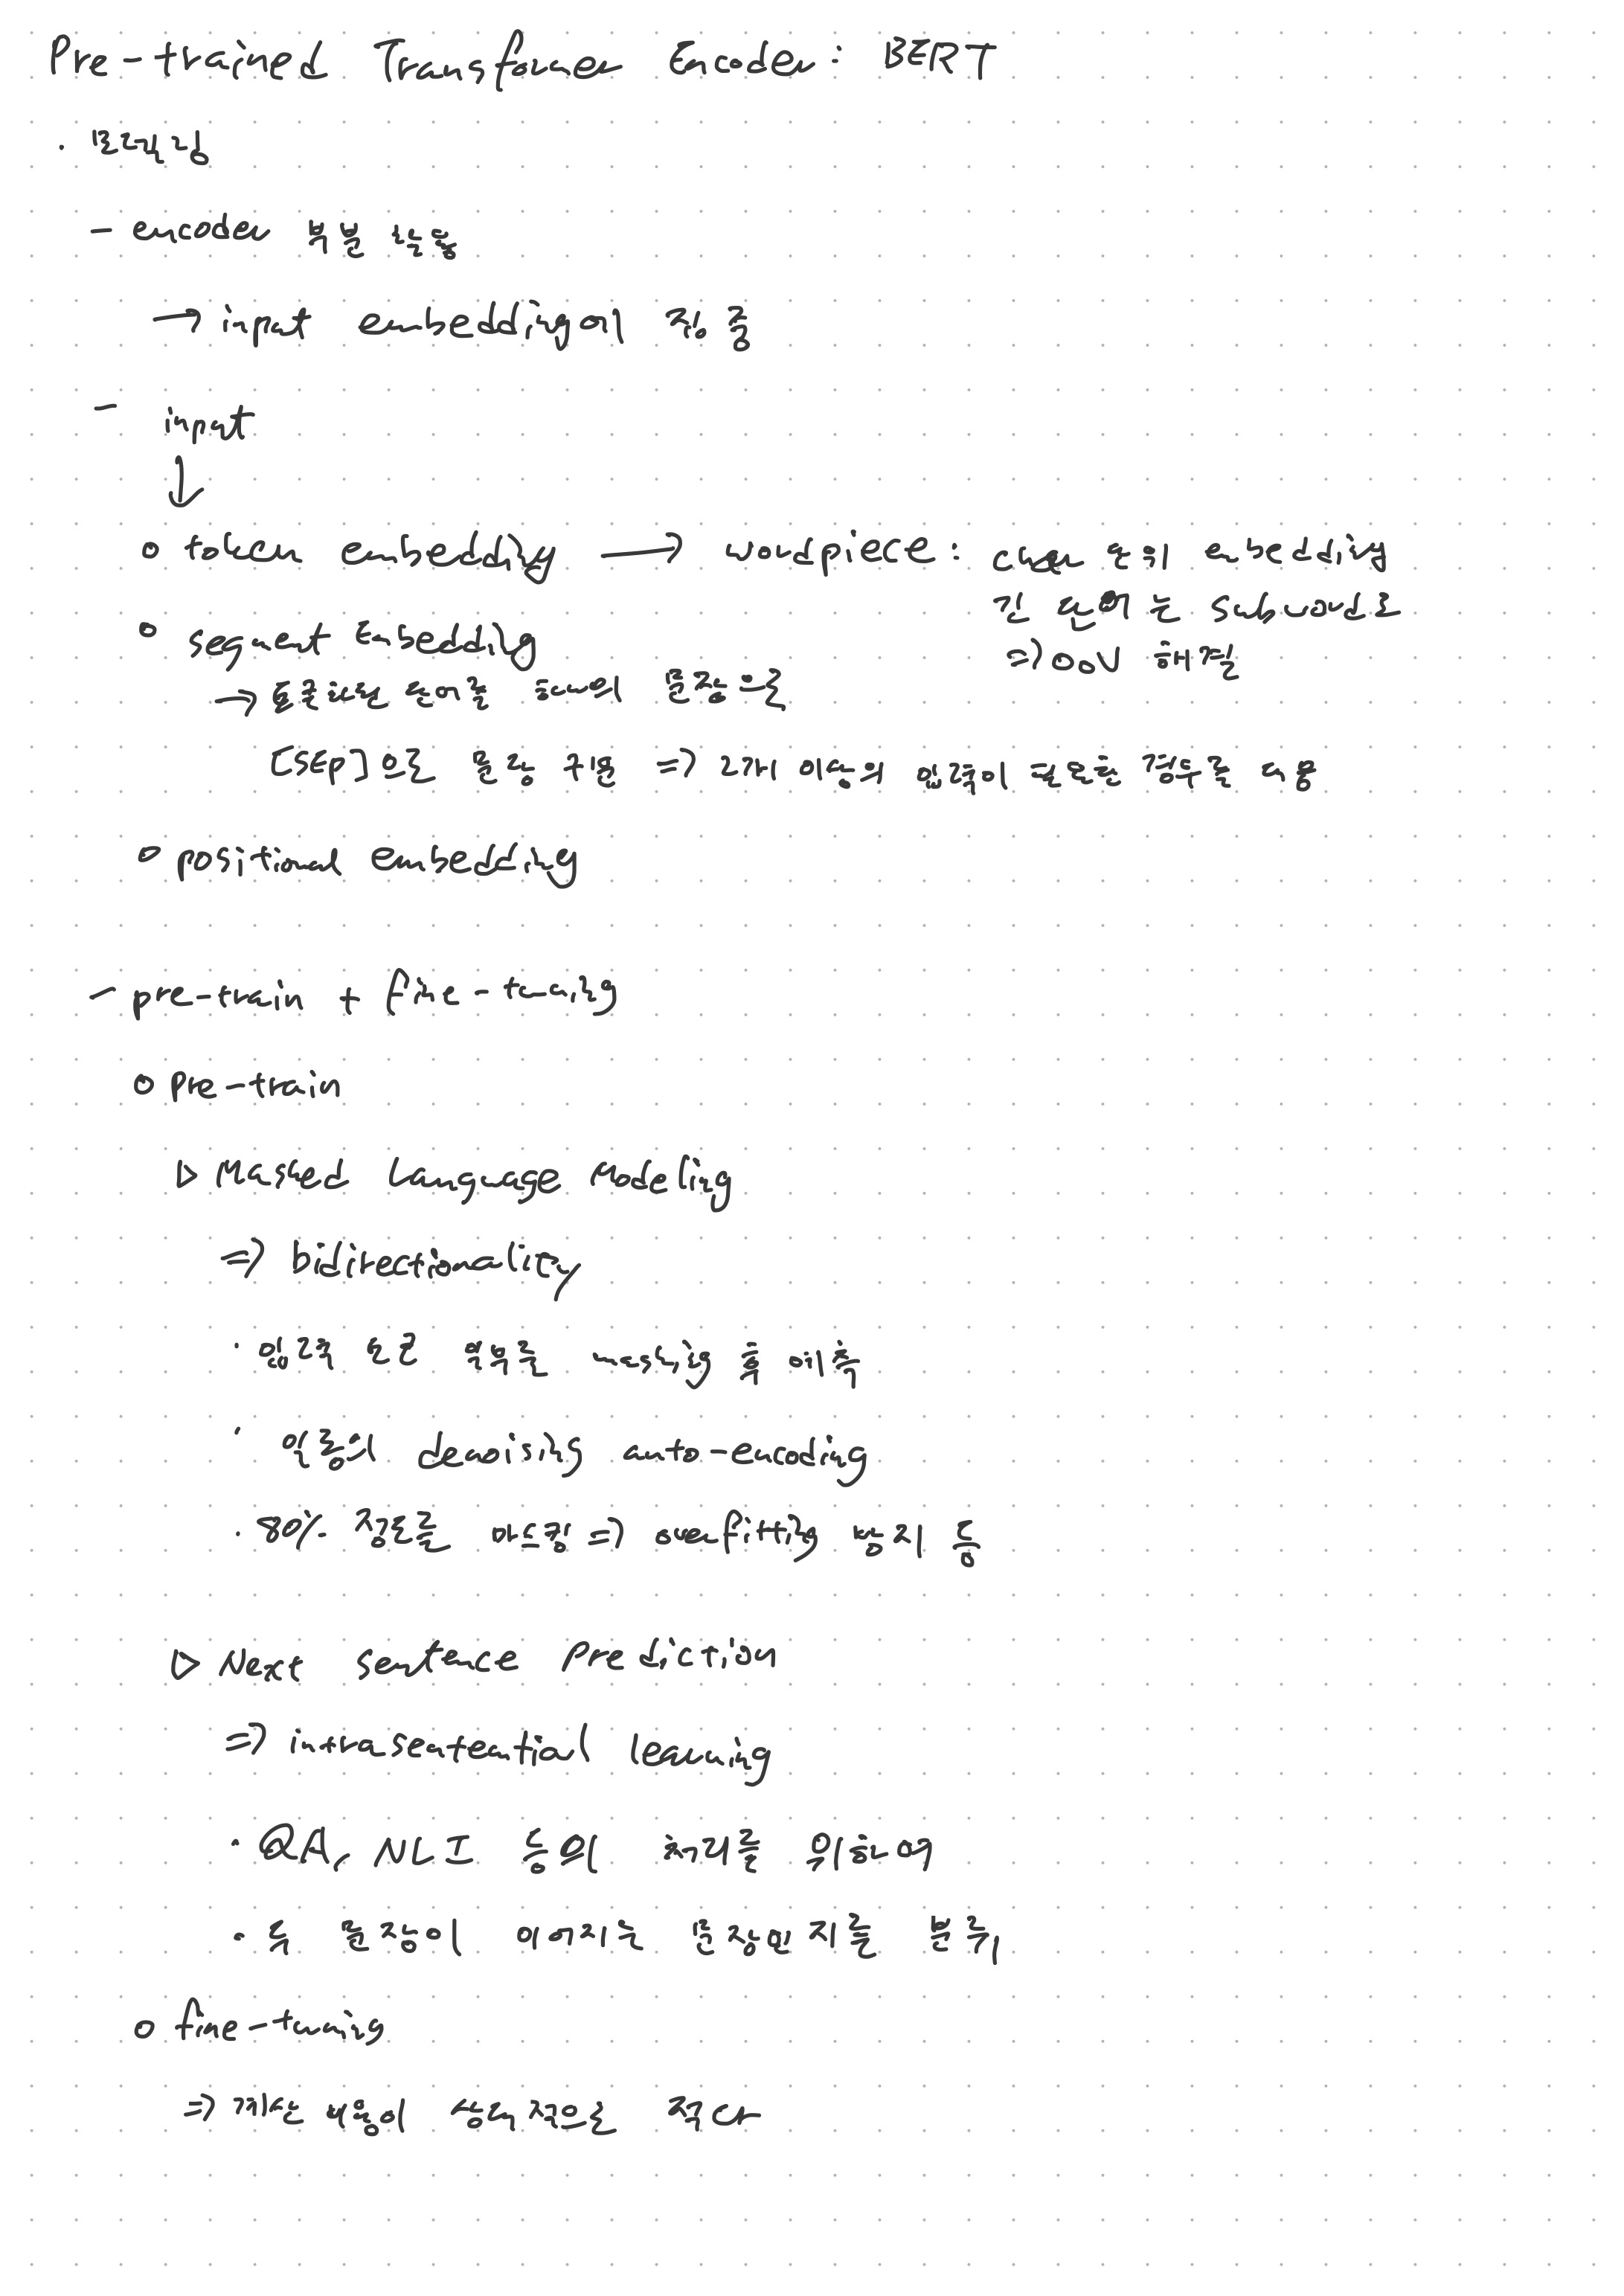 Pre-trained Transformer Encoder: BERT
· 모델링
- encoder 부분 활용
→ input embedding에 집중
- input
↓
o token embedding → wordpiece: char 단위 embedding
긴 단어는 subword로
⇒ OOV 해결
o segment Embedding
→ 토큰화한 단어를 하나의 문장으로
[SEP]으로 문장 구분 ⇒ 2개 이상의 입력이 필요한 경우를 사용
o positional embedding
- pre-train + fine-tuning
o pre-train
▷ Masked Language Modeling
⇒ bidirectionality
· 입력 토큰 일부를 masking 후 예측
· 일종의 denoising auto-encoding
· 80% 정도를 마스킹 ⇒ overfitting 방지 등
▷ Next Sentence Prediction
⇒ intrasentential learning
· QA, NLI 등의 처리를 위하여
· 두 문장이 이어지는 문장인지를 분류
o fine-tuning
⇒ 계산 비용이 상대적으로 적다